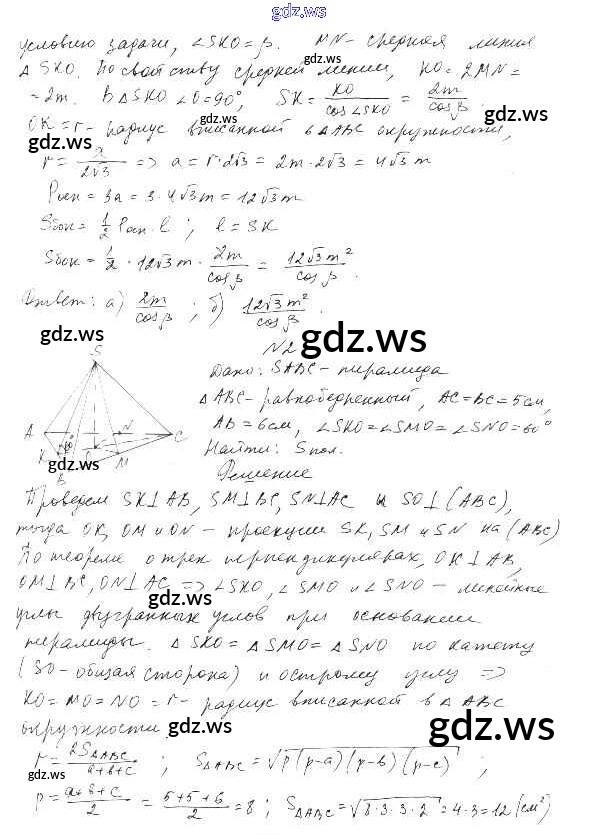 gdz.ws
условию задачи, ∠SKO=β. MN- средняя линия
gdz.ws
△SKO. По свойству средней линии, KO=2MN=
=2m. В △SKO ∠O=90°, SK= KO/cos∠SKO = 2m/cosβ.
gdz.ws
OK=r- радиус вписанной в △ABC окружности,
gdz.ws
r= a/2√3 => a=r·2√3=2m·2√3=4√3 m
Pосн=3a=3·4√3m=12√3m
gdz.ws
Sбок=1/2 Pосн·l; l=SK
Sбок=1/2·12√3m·2m/cosβ=12√3m²/cosβ.
Ответ: а) 2m/cosβ; б) 12√3m²/cosβ.
gdz.ws
gdz.ws
N2
Дано: SABC- пирамида
△ABC- равнобедренный, AC=BC=5см,
AB=6см, ∠SKO=∠SMO=∠SNO=60°
Найти: Sпол.
S
A
N
C
K
60°
O
B
M
gdz.ws
gdz.ws
Решение
Проведем SK⊥AB, SM⊥BC, SN⊥AC и SO⊥(ABC),
тогда OK, OM и ON- проекции SK, SM и SN на (ABC)
gdz.ws
По теореме о трех перпендикулярах, OK⊥AB,
OM⊥BC, ON⊥AC => ∠SKO, ∠SMO и ∠SNO- линейные
gdz.ws
углы двугранных углов при основании
пирамиды. △SKO=△SMO=△SNO по катету
(SO- общая сторона) и острому углу =>
gdz.ws
KO=MO=NO=r- радиус вписанной в △ABC
окружности.
gdz.ws
gdz.ws
r= 2S△ABC/a+b+c; S△ABC=√p(p-a)(p-b)(p-c);
gdz.ws
p= a+b+c/2 = 5+5+6/2 =8; S△ABC=√8·3·3·2=4·3=12(см²)
gdz.ws
gdz.ws